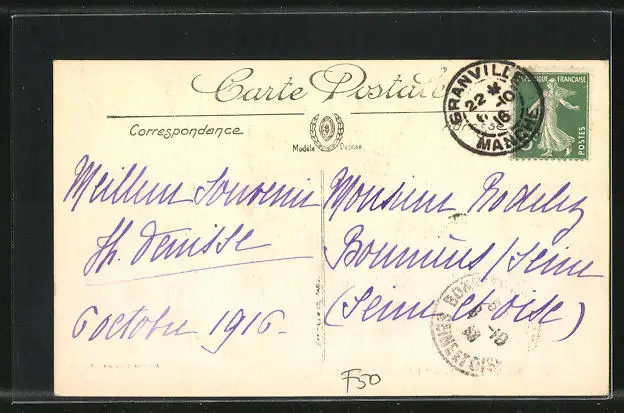 Carte Postale
Correspondance
Modèle Déposé
Adresse
GRANVILLE
22 * 6-10 16
MANCHE
REPUBLIQUE FRANCAISE
POSTES
Meilleur Souvenir
Th. Denisse
6 octobre 1916-
Monsieur Rodelez
/Seine
(Seine et oise)
8-10
SEINE ET OISE
F50